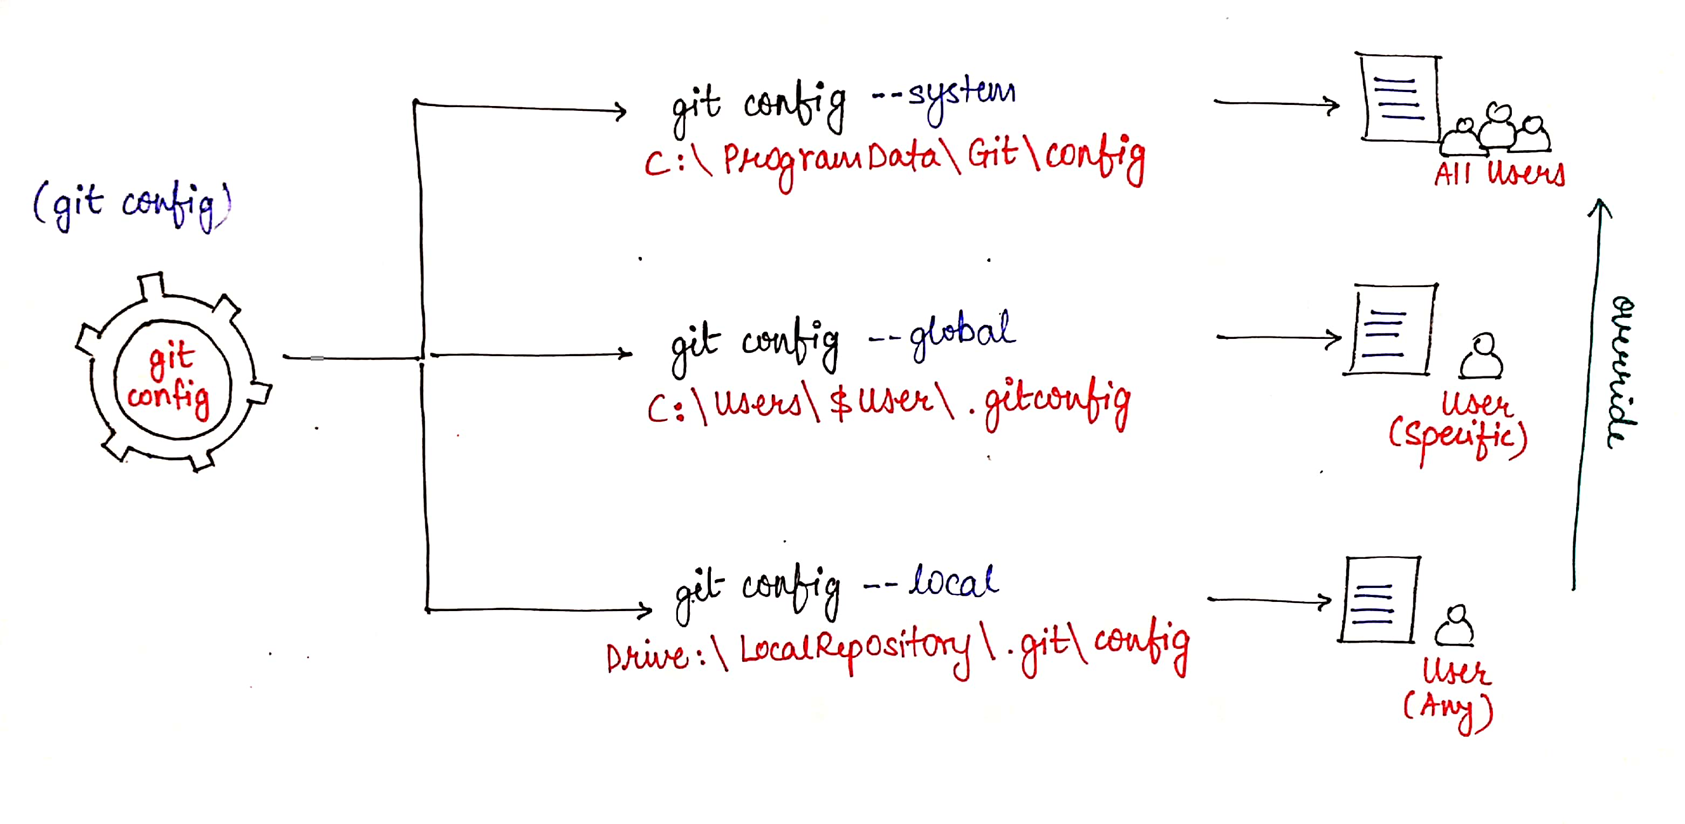 (git config)
git
config
git config --system
C:\ProgramData\Git\config
All Users
git config --global
C:\Users\$User\.gitconfig
User
(Specific)
override
git config --local
Drive:\LocalRepository\.git\config
User
(Any)